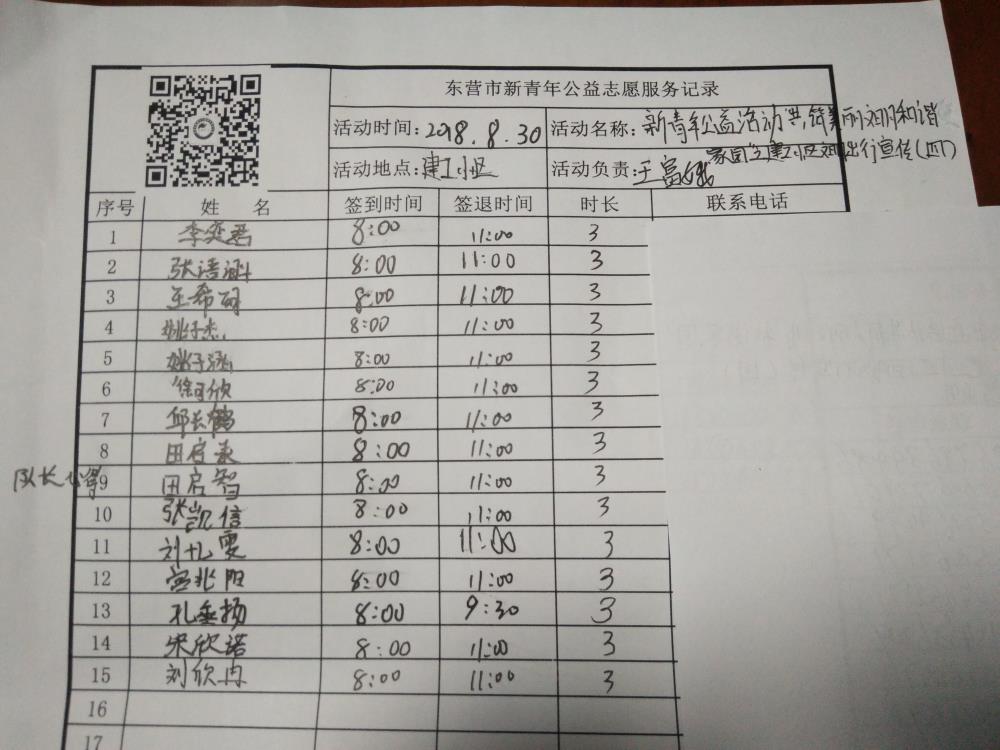 东营市新青年公益志愿服务记录
活动时间：2018.8.30 活动名称：新青年公益活动共筑美丽文明和谐
家园
活动地点：建工小区 活动负责：王富 出行宣传(四)
序号 姓 名 签到时间 签退时间 时长 联系电话
1 李奕君 8:00 11:00 3
2 张语涵 8:00 11:00 3
3 王希 8:00 11:00 3
4 姚子杰 8:00 11:00 3
5 姚子涵 8:00 11:00 3
6 徐可欣 8:00 11:00 3
7 邱长鹤 8:00 11:00 3
8 田启 8:00 11:00 3
队长 9 田启智 8:00 11:00 3
10 张凯信 8:00 11:00 3
11 刘 雯 8:00 11:00 3
12 宫兆阳 8:00 11:00 3
13 孔垂扬 8:00 9:30 3
14 宋欣诺 8:00 11:00 3
15 刘欣冉 8:00 11:00 3
16
17